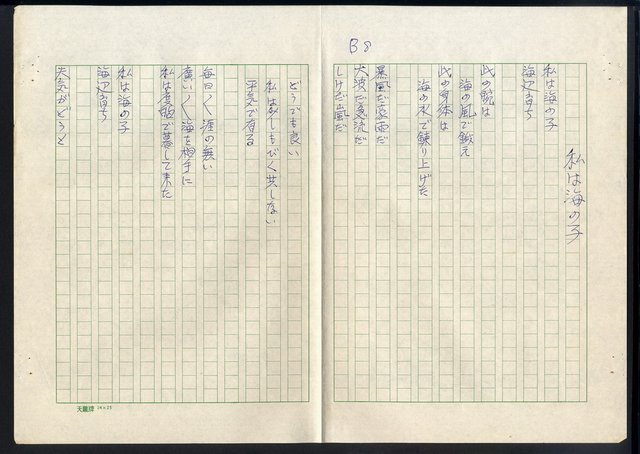 B8
私は海の子
私は海の子
海辺育ち
此の腕は
海の風で鍛え
此の身体は
海の水で錬り上げた
暴風だ豪雨だ
大波だ急流だ
しけだ嵐だ
どうでも良い
私は少しもびく共しない
平気で有る
毎日〱涯の無い
広い〱海を相手に
私は度胸で暮して来た
私は海の子
海辺育ち
天気がどうと
天龍牌 24×25